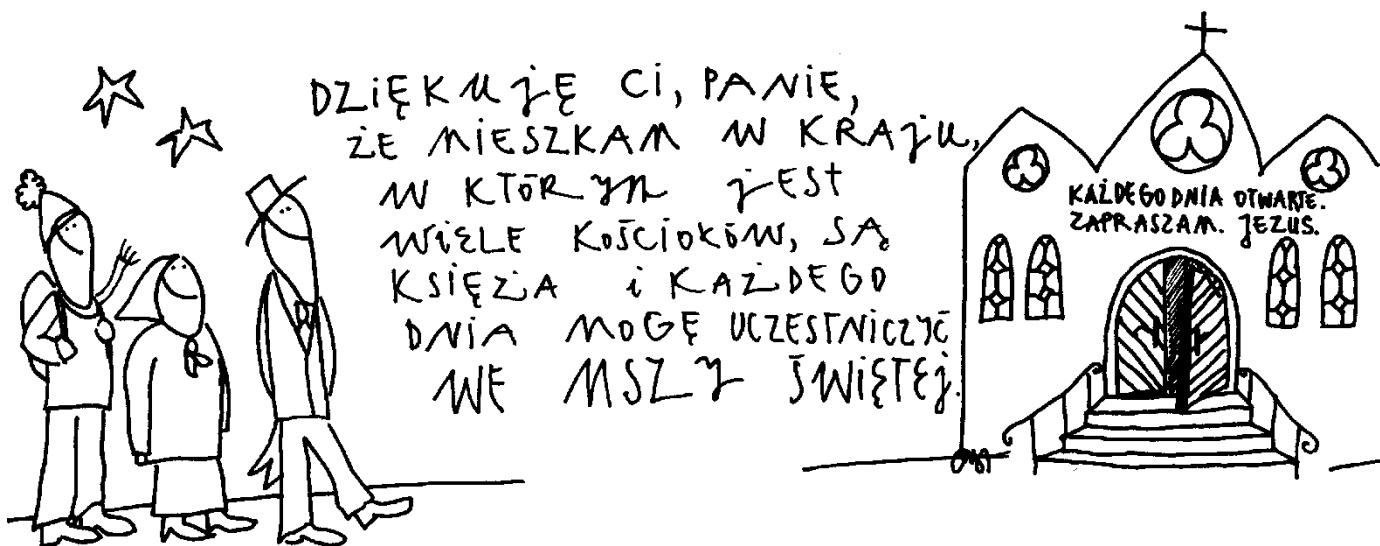 DZIĘKUJĘ CI, PANIE,
ŻE MIESZKAM W KRAJU,
W KTÓRYM JEST
WIELE KOŚCIOŁÓW, SĄ
KSIĘŻA I KAŻDEGO
DNIA MOGĘ UCZESTNICZYĆ
WE MSZY ŚWIĘTEJ.
KAŻDEGO DNIA OTWARTE.
ZAPRASZAM. JEZUS.